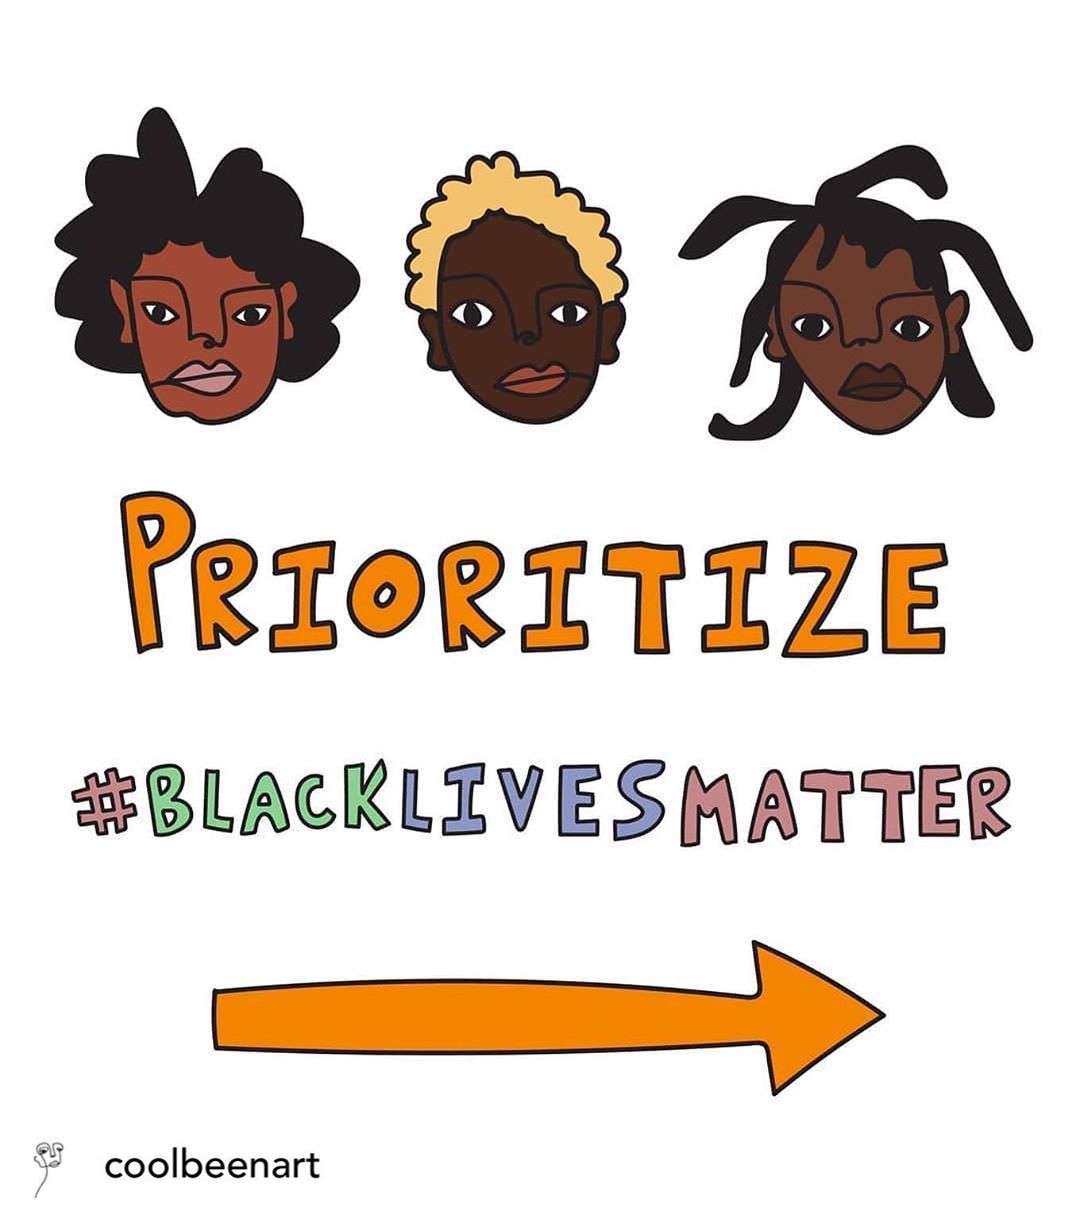 PRIORITIZE
#BLACKLIVESMATTER
coolbeenart